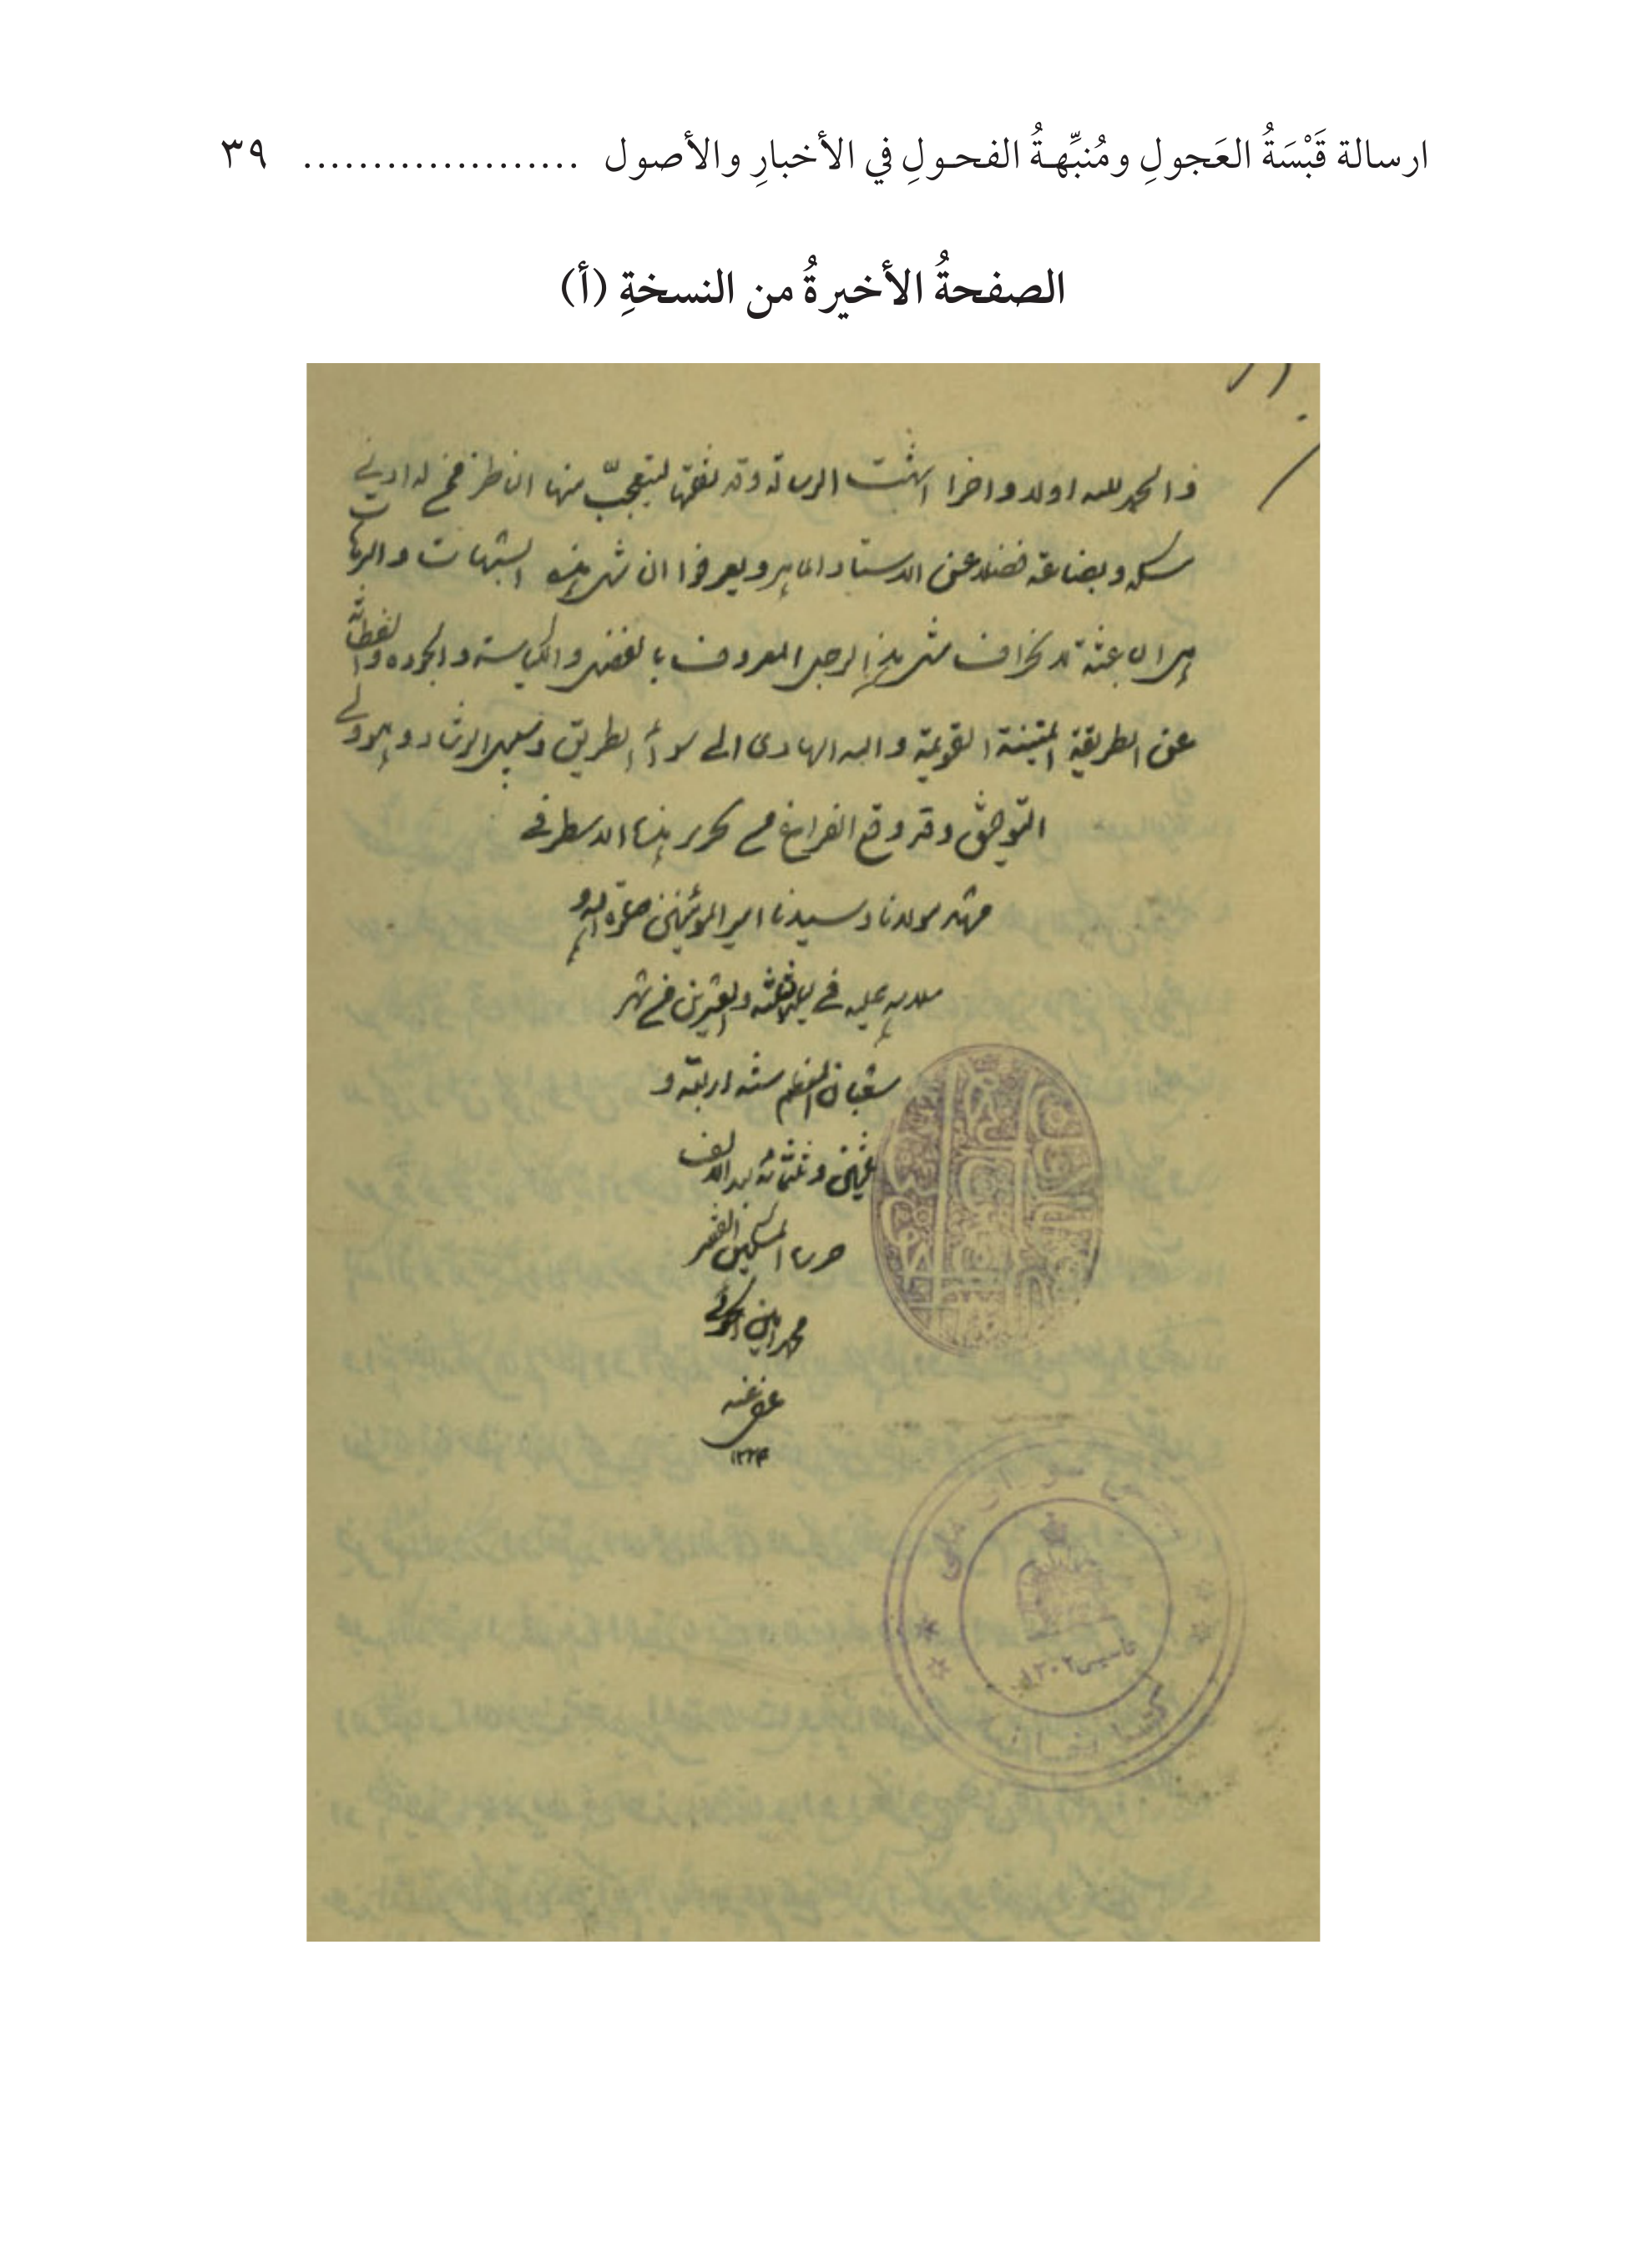 ارسالة قَبْسَةُ العَجولِ ومُنبِّهةُ الفحولِ في الأخبارِ والأصول .................... ٣٩
الصفحةُ الأخيرةُ من النسخةِ (أ)
والحمد لله اولا واخرا انتهت الرسالة وقد نقلتها ليتعجّب منها الناظر ممن له ادنى
مسكه وبضاعة فضلا عن الاستاد الماهر ويعرفوا ان مثل هذه الشبهات والترهات
هى الباعثة لانحراف مثل هذا الرجل المعروف بالفضل والكياسة والجودة والفطانة
عن الطريقة المتينة القويمة والله الهادى الى سواء الطريق وسبيل الرشاد وهو ولى
التوفيق وقد وقع الفراغ من تحرير هذه الاسطر فى
مشهد مولانا وسيدنا امير المؤمنين صلوة الله و
سلامه عليه فى ليلة الثلثة والعشرين من شهر
شعبان المعظم سنه اربعة و
وثلثمائة بعد الالف
حرره المسكين الفقير
محمد امين الخوئى
عفى عنه
تاسيس ١٣٠٢